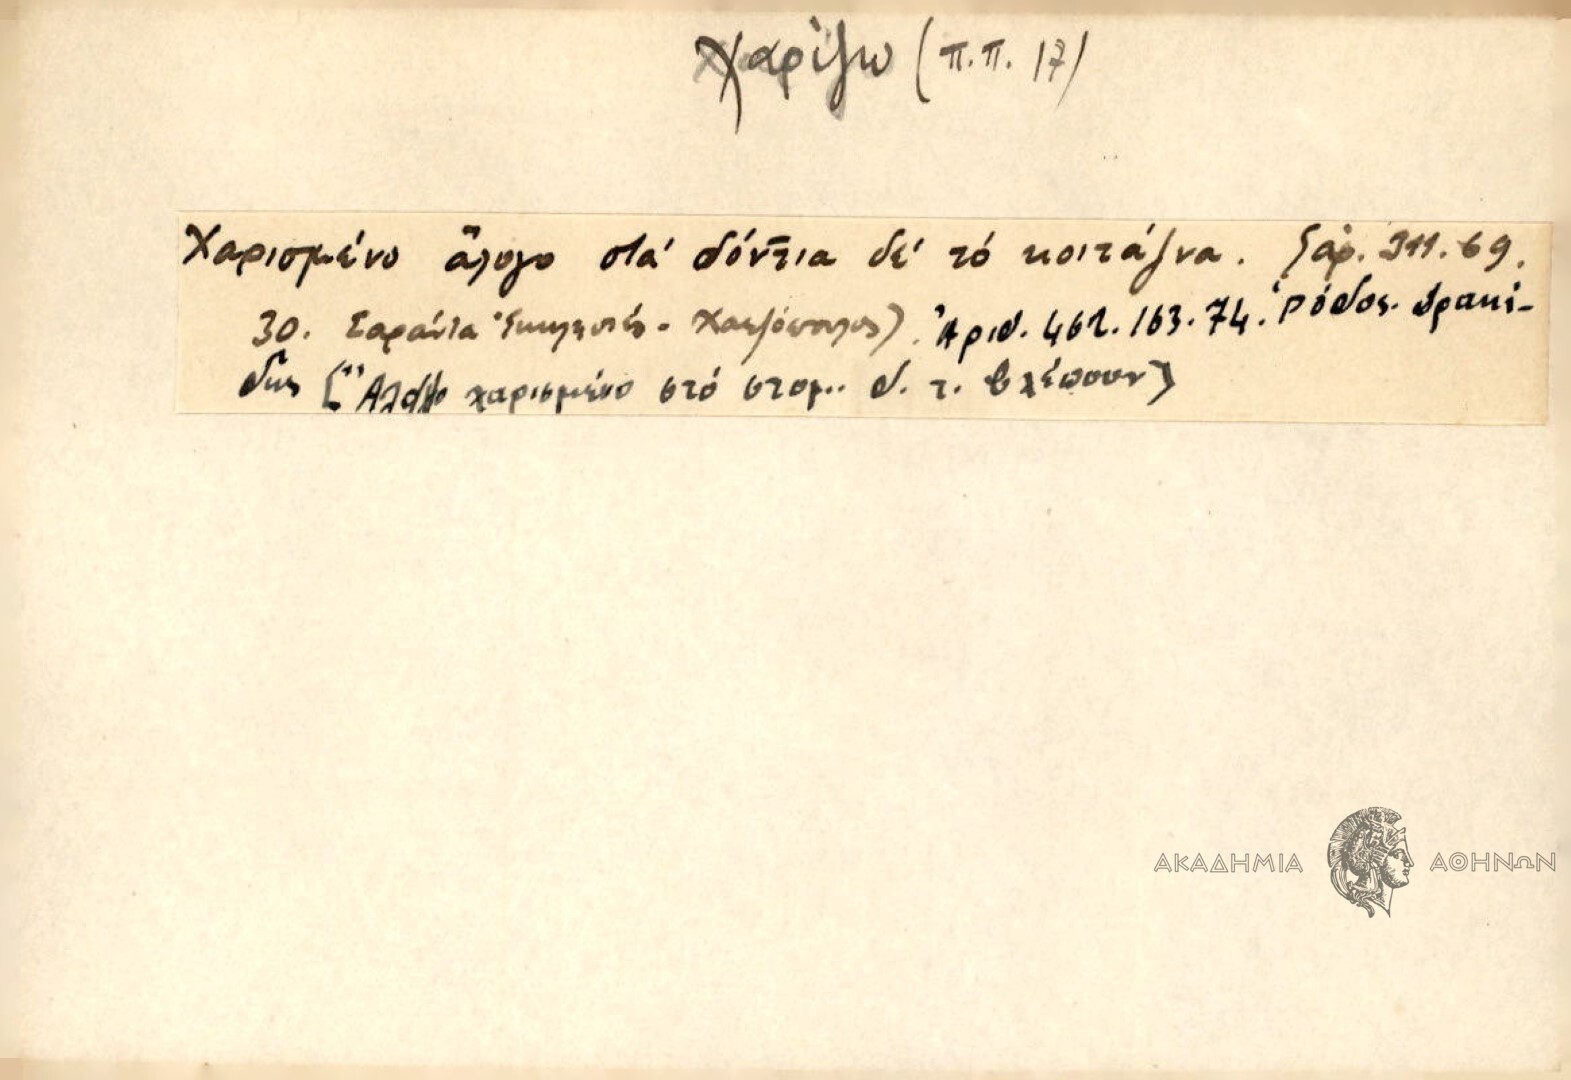 Χαρίζω (π.π. 17)
Χαρισμένο ἄλογο στά δόντια δέ τό κοιτάζνα. 311.69.
30. Σαράντα Ἐκκλησιές - Ἀριθ. 461.163.74. Ῥόδος. Βρακί-
δης (Ἄλογο χαρισμένο στό στομ.. δ. τ. βλέπουν)
ΑΚΑΔΗΜΙΑ ΑΘΗΝΩΝ